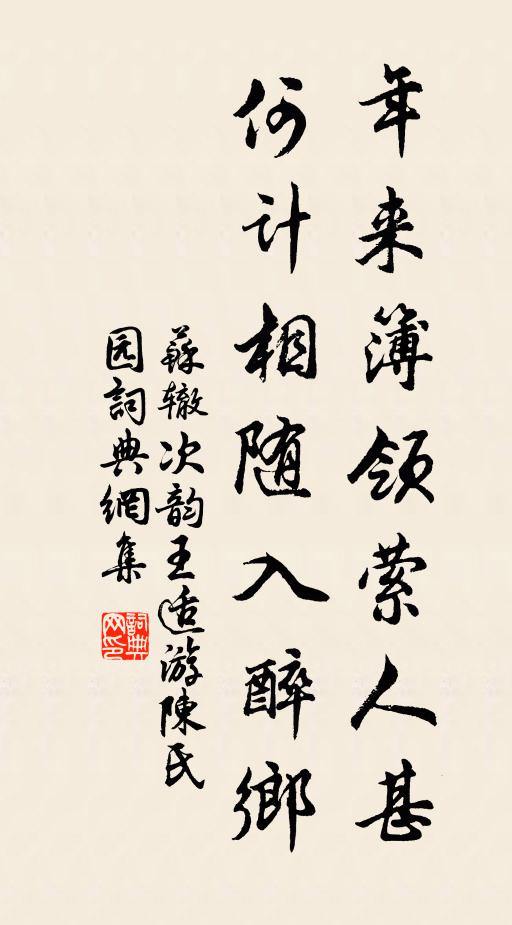 年来簿领萦人甚
何计相随入醉鄉
蘇辙次韵王适游陳氏
园詞典網集
詞典网印